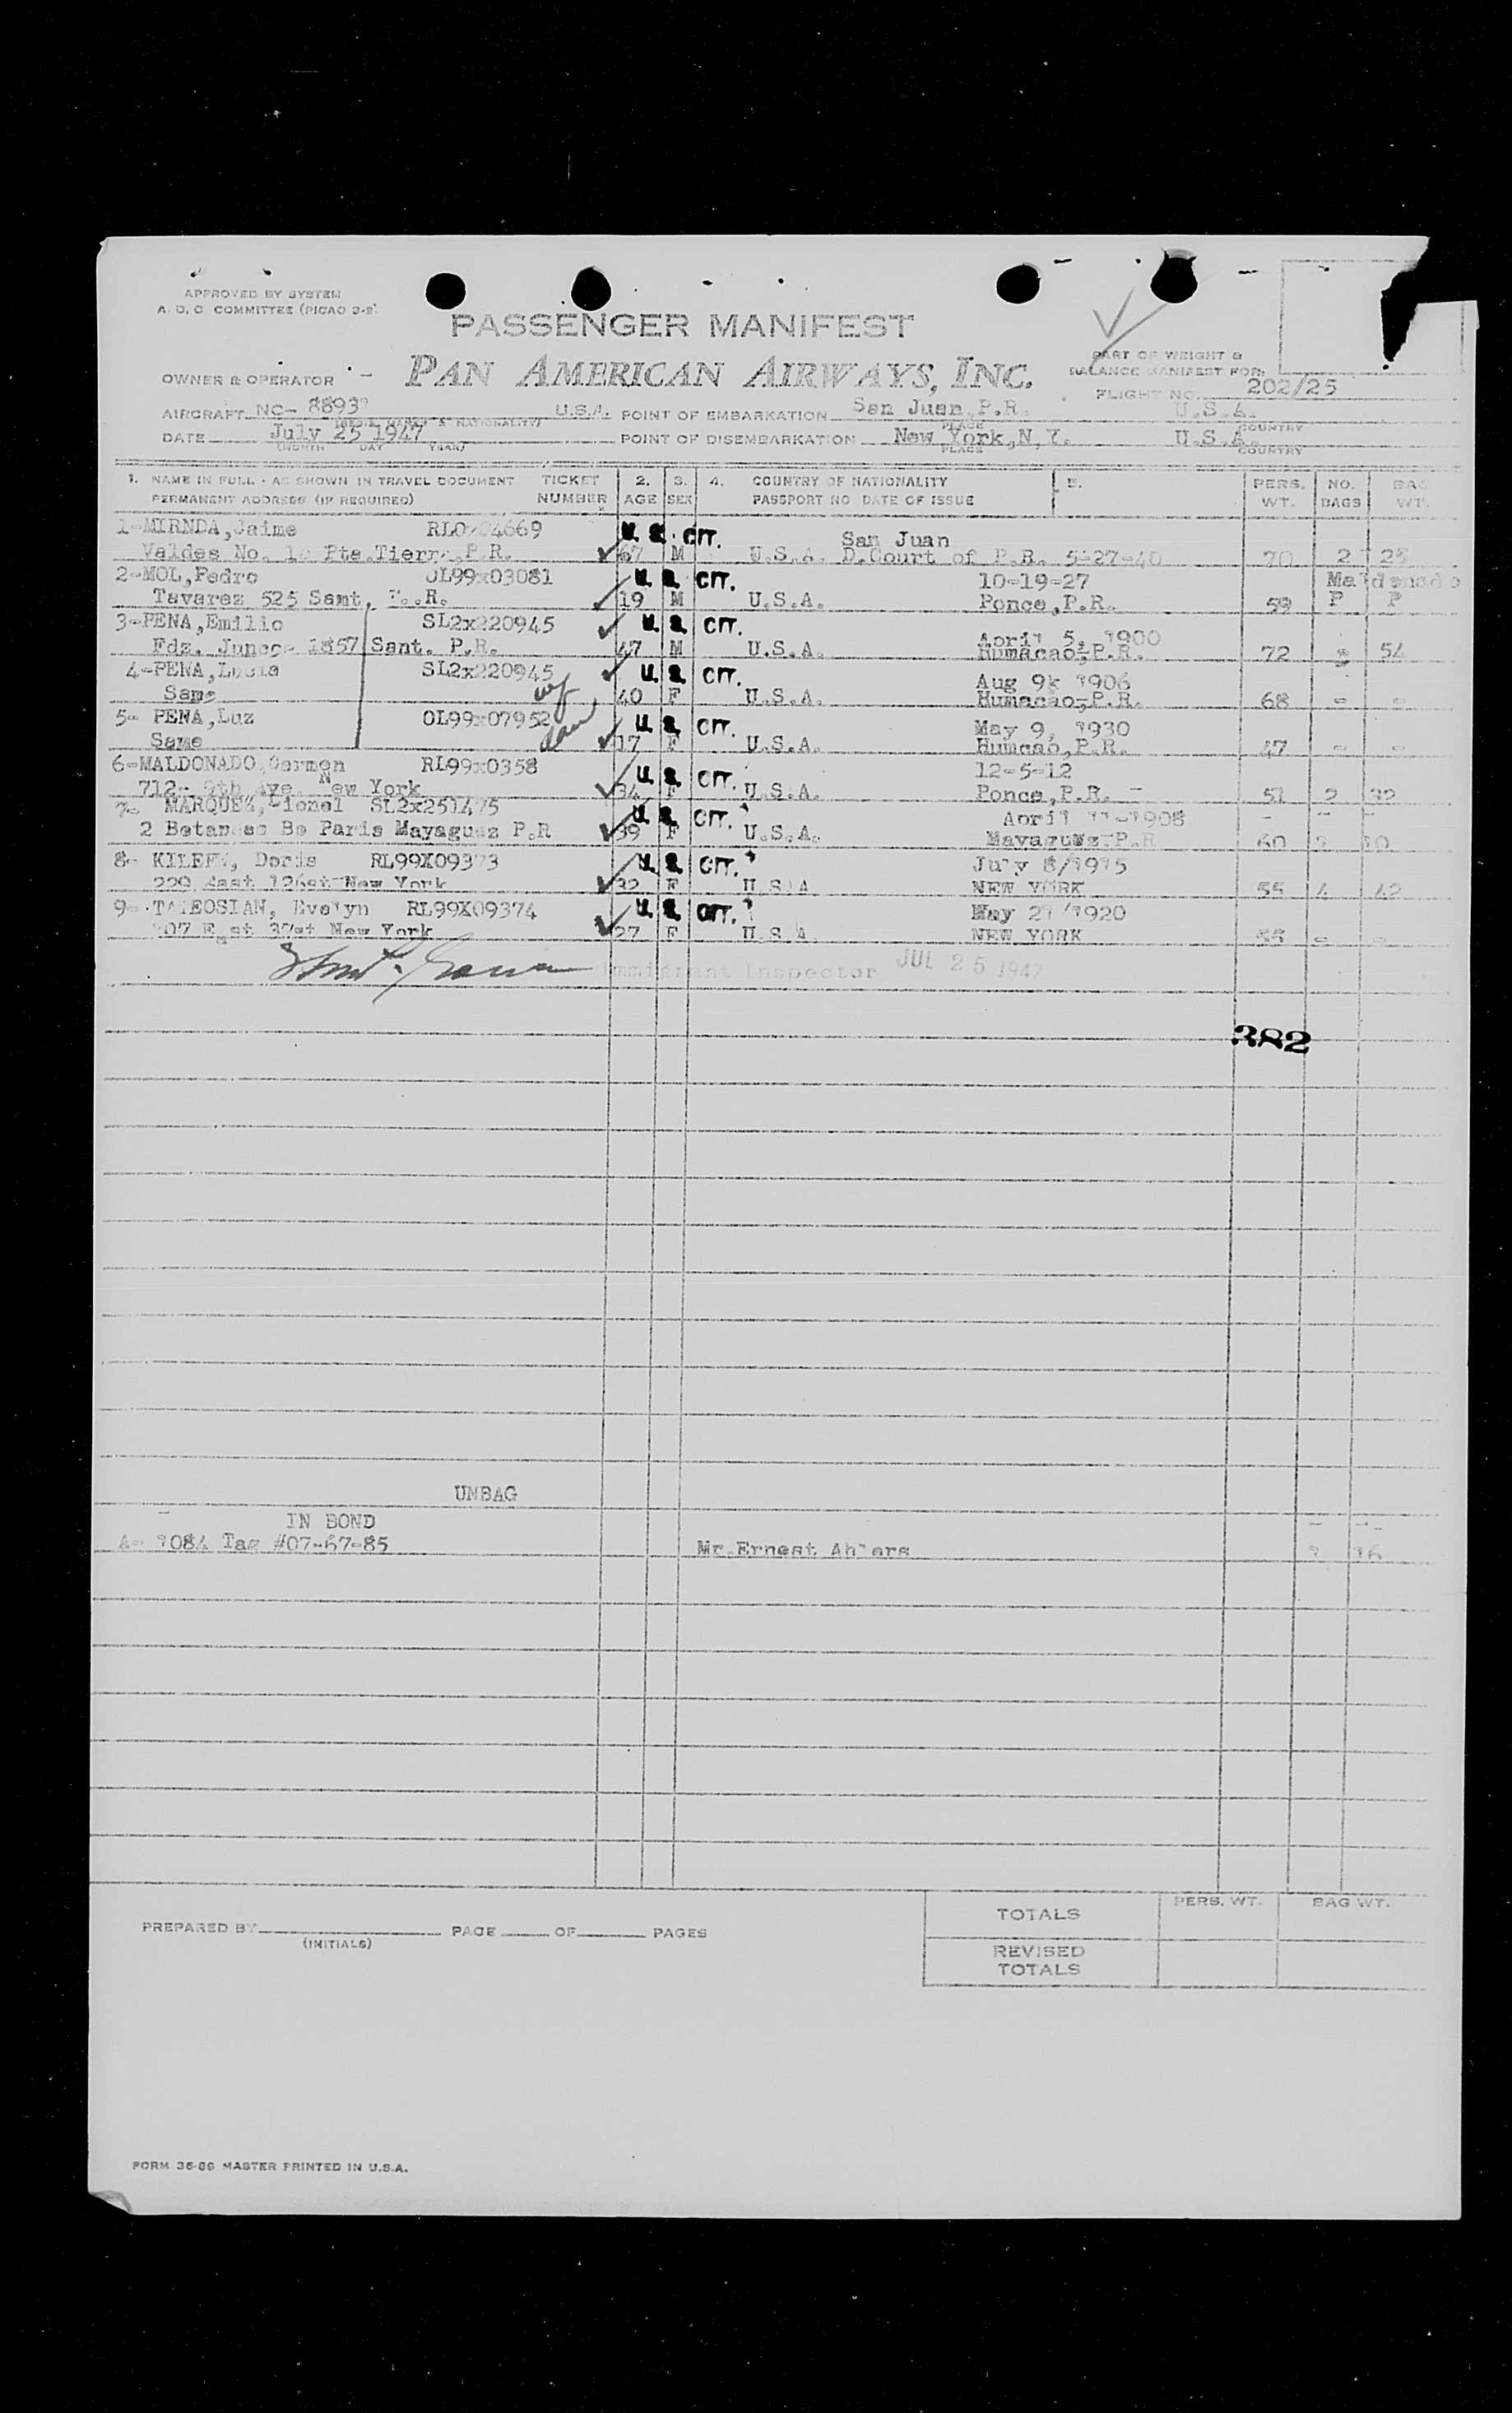 APPROVED BY SYSTEM
A. D. C. COMMITTEE (PICAO 2-9)
PASSENGER MANIFEST
PAN AMERICAN AIRWAYS, INC.
PART OF WEIGHT &
BALANCE MANIFEST FOR:
OWNER & OPERATOR
FLIGHT NO. 202/25
AIRCRAFT NC- U.S.A. POINT OF EMBARKATION San Juan, P.R. U.S.A.
PLACE COUNTRY
DATE July 25 1947 POINT OF DISEMBARKATION New York, N.Y. U.S.A.
(MONTH DAY YEAR) PLACE COUNTRY
1. NAME IN FULL - AS SHOWN IN TRAVEL DOCUMENT TICKET 2. 3. 4. COUNTRY OF NATIONALITY 5. PERS. NO. BAG
PERMANENT ADDRESS (IF REQUIRED) NUMBER AGE SEX PASSPORT NO DATE OF ISSUE WT. BAGS WT.
1-MIRNDA,Jaime U. S. CIT. San Juan
Valdes No. Pta.Tierra,P.R. 67 M U.S.A. D.Court of P.R. 5-27-40 70 2 25
2-MOL,Pedro OL99x03081 U. S. CIT. 10-19-27 Maldonado
Tavarez 525 Sant, P.R. 19 M U.S.A. Ponce,P.R. 59 P P
3-PENA,Emilio SL2x220945 U. S. CIT. April 5, 1900
Fdz. Juncos 1857 Sant. P.R. 47 M U.S.A. Humacao,P.R. 72 54
4-PENA,Lucia SL2x220945 wf U. S. CIT. Aug 9x 1906
Same 40 F U.S.A. Humacao,P.R. 68 - -
5- PENA,Luz OL99x07952 dau U. S. CIT. May 9, 1930
Same 17 F U.S.A. Humcao,P.R. 47 - -
6-MALDONADO,Carmen RL99x0358 U. S. CIT. 12-5-12
712- 9th Ave. New York 34 F U.S.A. Ponce,P.R. - 51 2 32
7- MARQUEZ, Lionel SL2x251475 U. S. CIT. April 11-1908 - - -
2 Betances Bo Paris Mayaguez P.R 39 F U.S.A. Mayaguez P.R 60
8- Doris RL99X09373 U. S. CIT. July 8/1915
229 East 126st New York 32 F U.S.A NEW YORK 55 4 42
9- Evelyn RL99X09374 U. S. CIT. May 21/1920
East 37st New York 27 F U.S.A. NEW YORK 55 - -
Immigrant Inspector JUL 25 1947
382
UNBAG
IN BOND
A- 1084 Tag #07-67-85 Mr.Ernest Ahlers 1 16
PREPARED BY PAGE OF PAGES
(INITIALS)
TOTALS PERS. WT. BAG WT.
REVISED
TOTALS
FORM 36-89 MASTER PRINTED IN U.S.A.